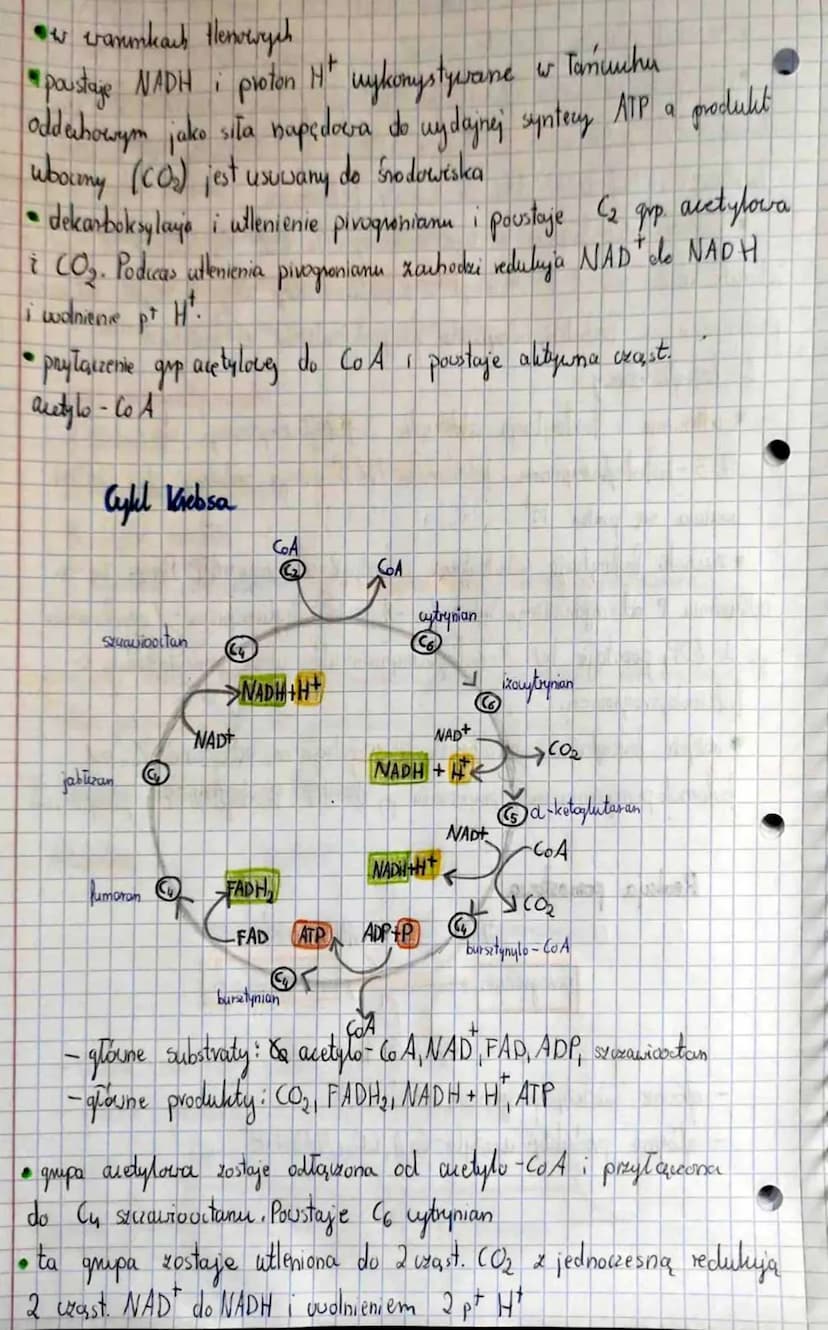 • w warunkach tlenowych
• powstaje NADH i proton H⁺ wykorzystywane w łańcuchu
oddechowym jako siła napędowa do wydajnej syntezy ATP a produkt
uboczny (CO₂) jest usuwany do środowiska
• dekarboksylacja i utlenienie pirogronianu i powstaje C₂ grp. acetylowa
i CO₂. Podczas utlenienia pirogronianu zachodzi redukcja NAD⁺ do NADH
i uwolnienie p⁺ H⁺.
• przyłączenie grp acetylowej do CoA i powstaje aktywna cząst.
acetylo-CoA
Cykl Krebsa
CoA
C₂
CoA
cytrynian
C₆
szczawiooctan
C₄
izocytrynian
C₆
NADH+H⁺
NAD⁺
NAD⁺
CO₂
NADH + H⁺
jabłczan
C₄
C₅ α-ketoglutaran
NAD⁺
CoA
NADH+H⁺
CO₂
fumaran
C₄
FADH₂
FAD
ATP
ADP+P
C₄
bursztynylo-CoA
C₄
bursztynian
CoA
- główne substraty: acetylo-CoA, NAD⁺, FAD, ADP, szczawiooctan
- główne produkty: CO₂, FADH₂, NADH + H⁺, ATP
• grupa acetylowa zostaje odłączona od acetylo-CoA i przyłączona
do C₄ szczawiooctanu. Powstaje C₆ cytrynian
• ta grupa zostaje utleniona do 2 cząst. CO₂ z jednoczesną redukcją
2 cząst. NAD⁺ do NADH i uwolnieniem 2 p⁺ H⁺